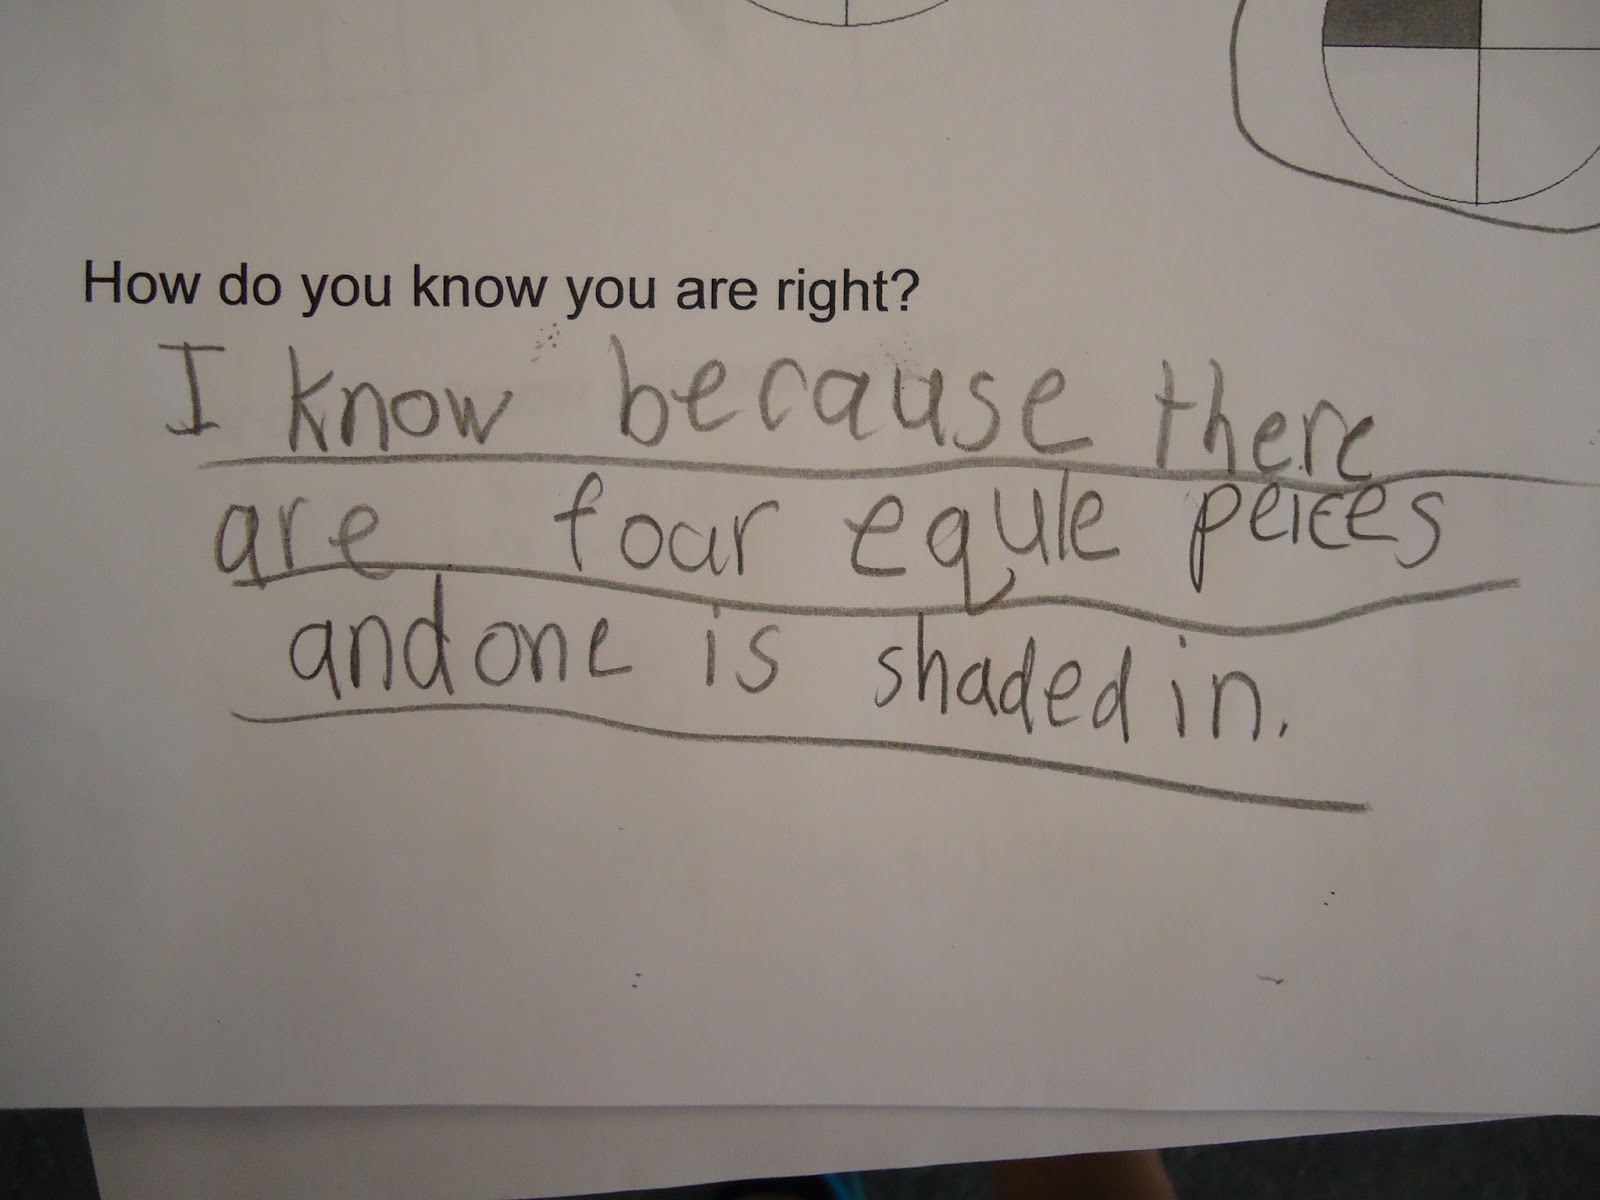 How do you know you are right?
I know because there
are four equle peices
and one is shaded in.